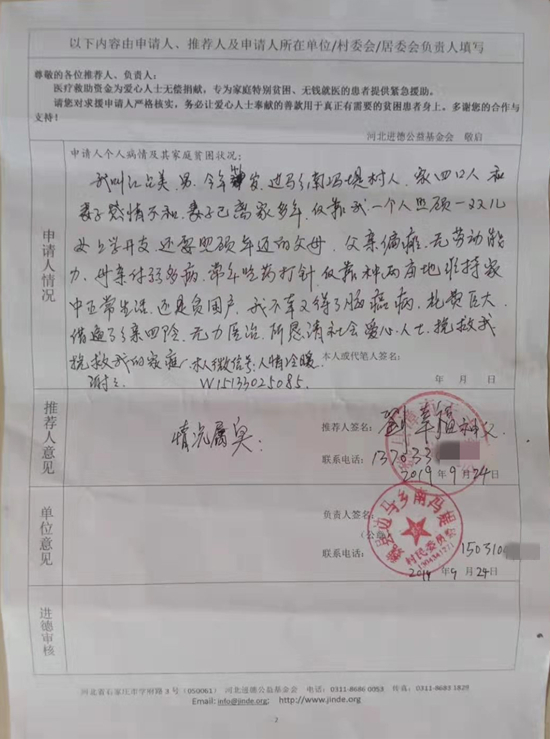 以下内容由申请人、推荐人及申请人所在单位/村委会/居委会负责人填写
尊敬的各位推荐人、负责人:
医疗救助资金为爱心人士无偿捐献,专为家庭特别贫困、无钱就医的患者提供紧急援助。
请您对求援申请人严格核实,务必让爱心人士奉献的善款用于真正有需要的贫困患者身上。多谢您的合作与
支持!
河北进德公益基金会 敬启
申请人情况
申请人个人病情及其家庭贫困状况:
我叫江占美,男,今年 岁,边马乡南冯堤村人,家四口人和
妻子感情不和,妻子已离家多年,仅靠我一个人照顾一双儿
女上学开支,还要照顾年迈的父母,父亲偏瘫,无劳动能
力,母亲体弱多病,常年吃药打针,仅靠种两亩地维持家
中正常生活,还是贫困户,我不幸又得了脑瘤病,花费巨大
借遍了乡亲四邻,无力医治,所恳请社会爱心人士,挽救我
挽救我的家庭 本人微信号:人情冷暖
谢谢 W15133025085.
本人或代笔人签名:
年 月 日
推荐人意见
情况属实:
推荐人签名: 劉幸福神父
联系电话: 137033
2019 年 9 月 24 日
单位意见
负责人签名:
(公章)
联系电话: 150310
2019 年 9 月 24 日
边马乡南冯堤
村民委员会
进德审核
河北省石家庄市学府路 3 号 (050061) 河北进德公益基金会 电话: 0311-8686 0053 传真: 0311-8683 1829
Email: info@jinde.org; http://www.jinde.org
2